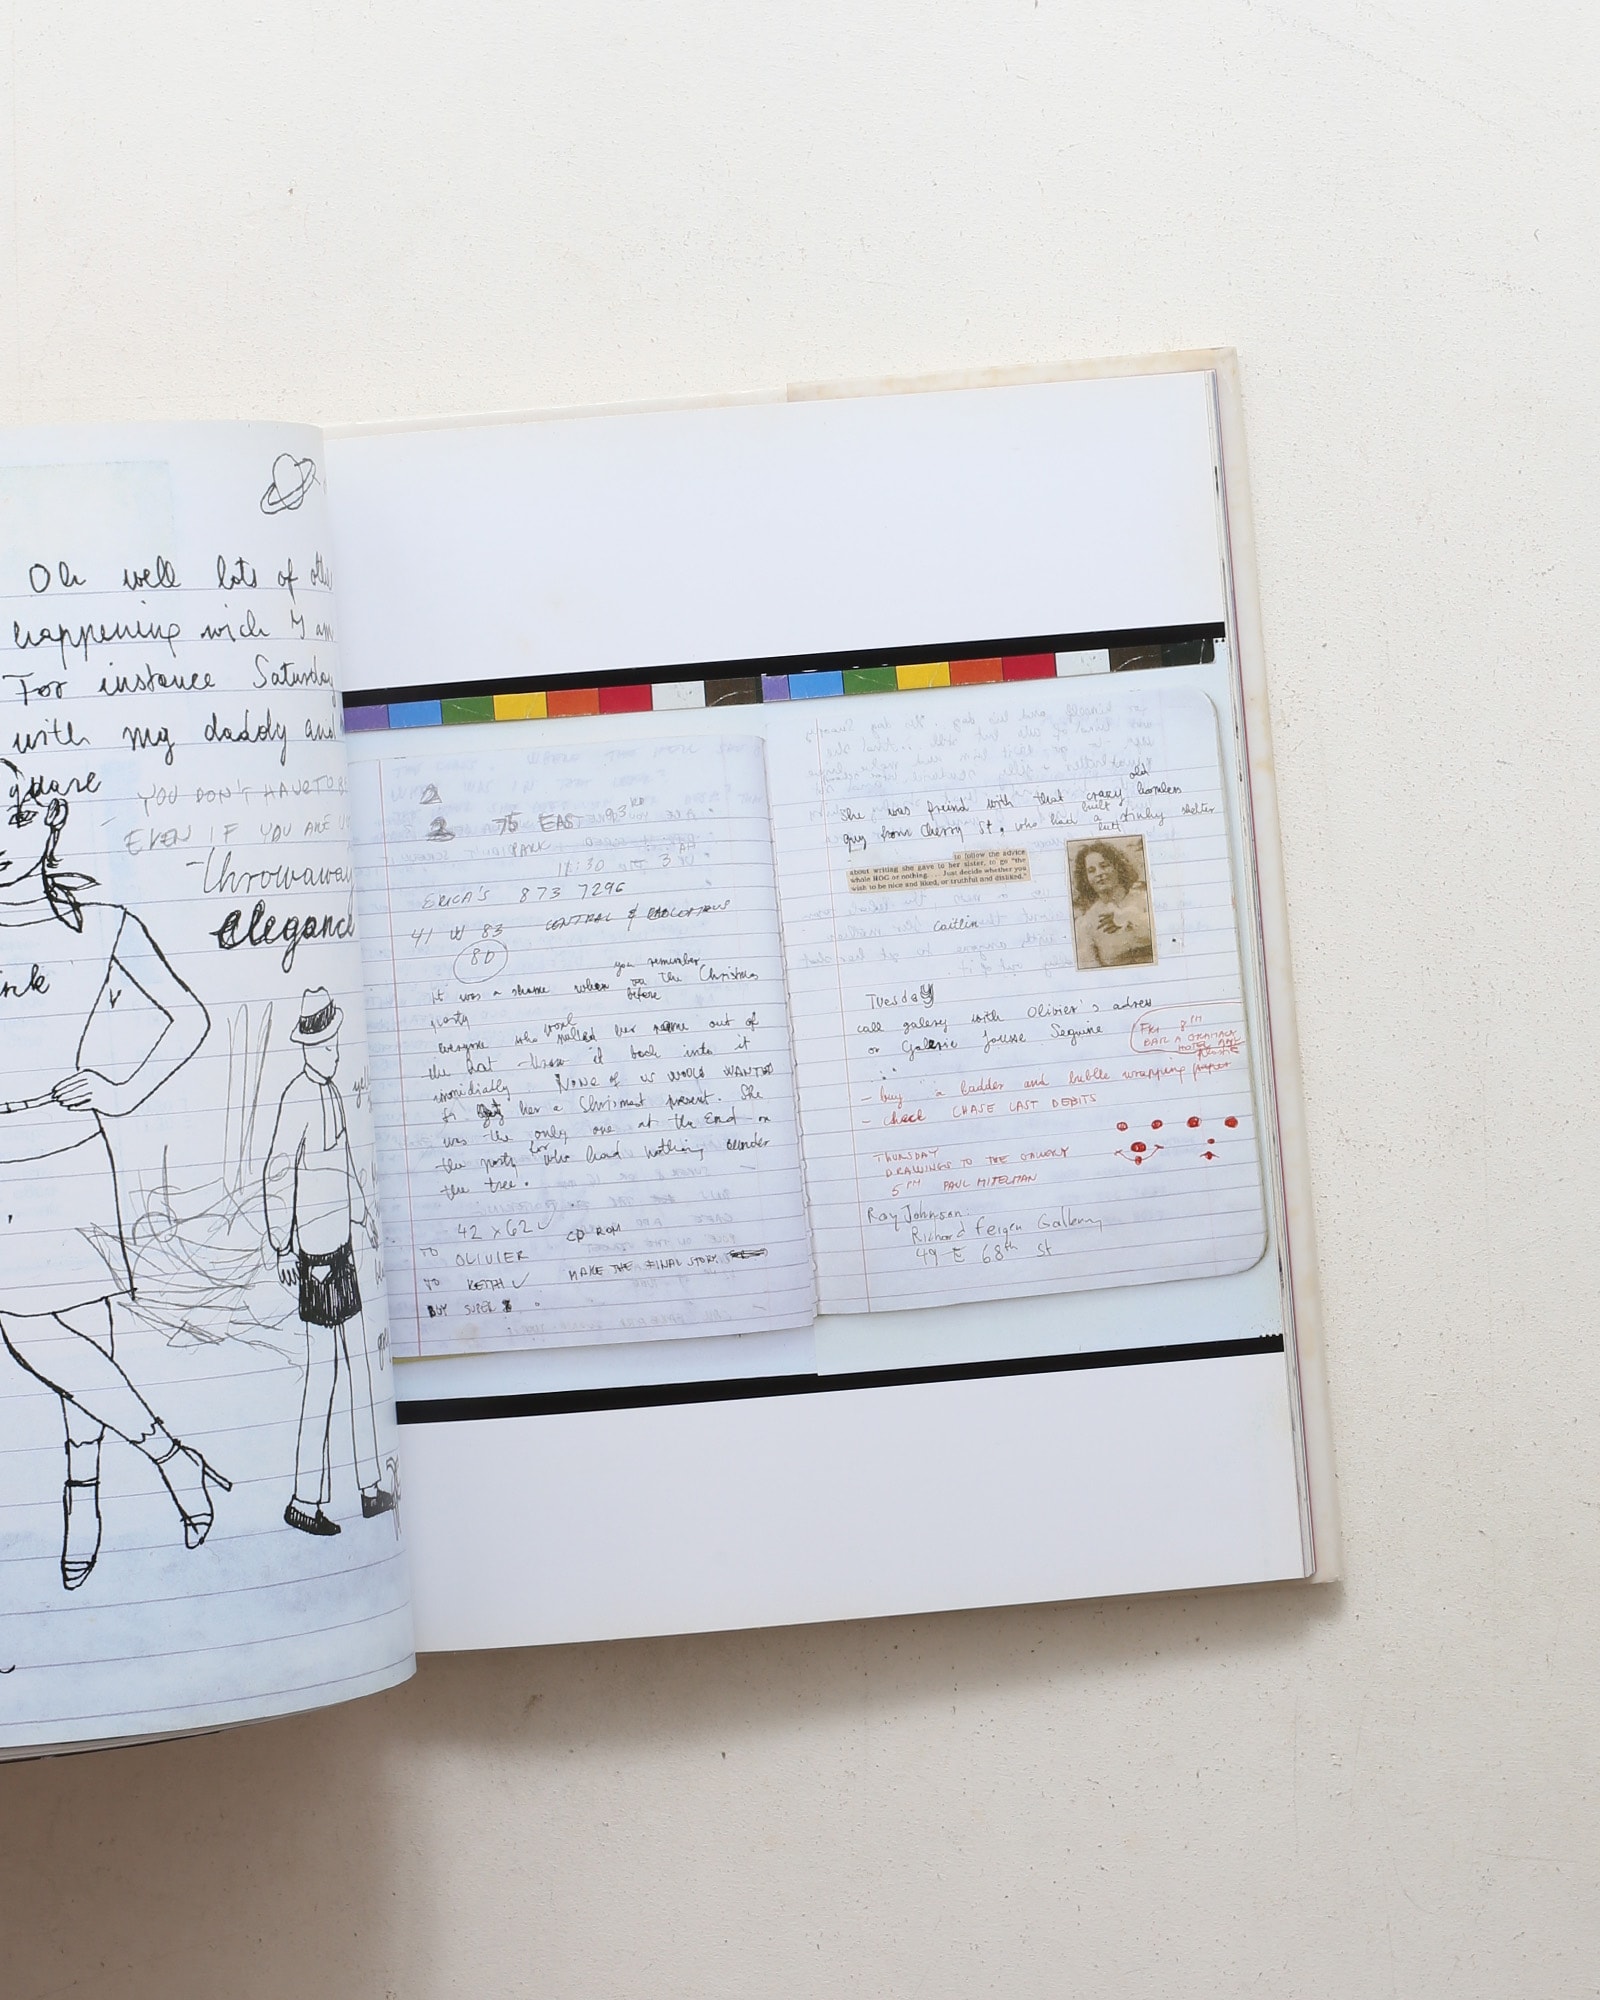 Oh well lots of
happening wich I am
For instance Saturday
with my daddy and
square
YOU DON'T HAVE TO BE
EVEN IF YOU ARE
Throwaway
elegance
2
2 75 EAS 93RD
PARK
11:30 3
ERICA'S 873 7296
41 W 83 CENTRAL & COLOMBUS
80
you remember
It was a shame when the Christmas
before
party
Everyone who pulled her name out of
the hat - throw it back into it
immidiatly NONE OF US WOULD WANTED
her a Chrismast present. She
was the only one at the End on
the party who had nothing under
the tree.
42 x 62 CD ROM
TO OLIVIER
TO KEITH MAKE THE FINAL STORY
BUY SUPER 8
old
She was freind with that crazy homless
built
guy from Cherry St. who had a stinky shelter
to follow the advice
about writing she gave to her sister, to go "the
whole HOG or nothing. . . Just decide whether you
wish to be nice and liked, or truthful and disliked."
Caitlin
Tuesday
call galery with Olivier's adress
or Galerie Jousse Seguine
FRI 8PM
BAR A DRAMACK
HOTEL
- buy a ladder and bubble wrapping paper
plastic
- check CHASE LAST DEBITS
THURSDAY
DRAWINGS TO THE GALLERY
5PM PAUL MITELMAN
Ray Johnson:
Richard Feigen Gallery
49 E 68th St